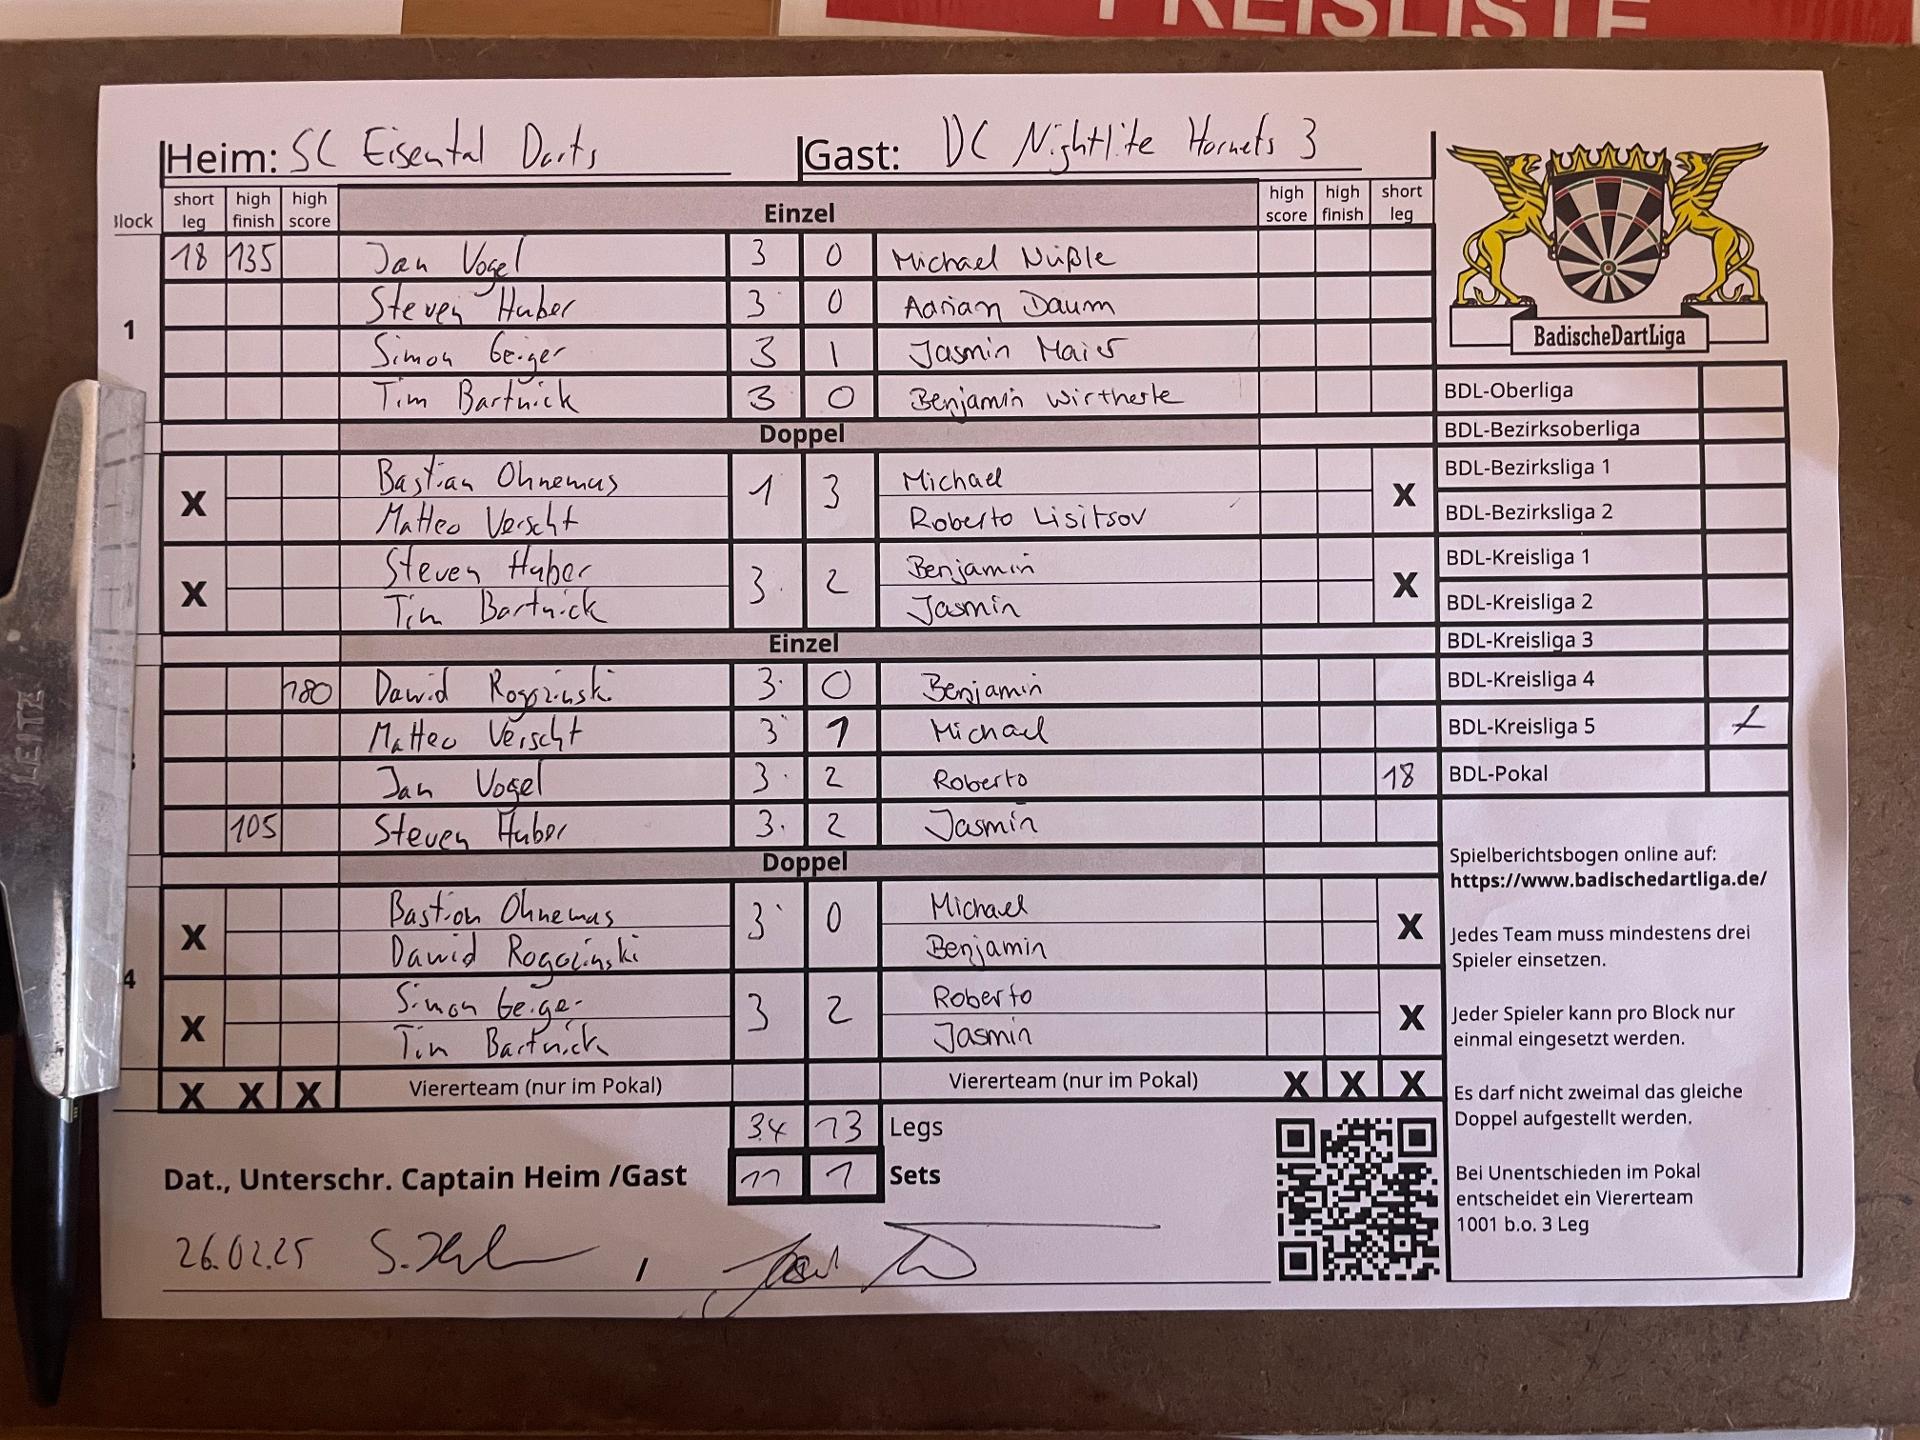 PREISLISTE
Heim: SC Eisental Darts Gast: DC Nightlite Hornets 3
Block short leg high finish high score Einzel high score high finish short leg
1
18 135 Jan Vogel 3 0 Michael Nüßle
Steven Huber 3 0 Adrian Daum
Simon Geiger 3 1 Jasmin Maier
Tim Bartnick 3 0 Benjamin Wirtherle
Doppel
X Bastian Ohnemus 1 3 Michael X
Matteo Verscht Roberto Lisitsov
X Steven Huber 3 2 Benjamin X
Tim Bartnick Jasmin
Einzel
180 Dawid Rogozinski 3 0 Benjamin
Matteo Verscht 3 1 Michael
Jan Vogel 3 2 Roberto 18
105 Steven Huber 3 2 Jasmin
Doppel
4
X Bastian Ohnemus 3 0 Michael X
Dawid Rogozinski Benjamin
X Simon Geiger 3 2 Roberto X
Tim Bartnick Jasmin
X X X Viererteam (nur im Pokal) Viererteam (nur im Pokal) X X X
34 13 Legs
Dat., Unterschr. Captain Heim /Gast 11 1 Sets
26.02.25
BadischeDartLiga
BDL-Oberliga
BDL-Bezirksoberliga
BDL-Bezirksliga 1
BDL-Bezirksliga 2
BDL-Kreisliga 1
BDL-Kreisliga 2
BDL-Kreisliga 3
BDL-Kreisliga 4
BDL-Kreisliga 5 x
BDL-Pokal
Spielberichtsbogen online auf:
https://www.badischedartliga.de/
Jedes Team muss mindestens drei
Spieler einsetzen.
Jeder Spieler kann pro Block nur
einmal eingesetzt werden.
Es darf nicht zweimal das gleiche
Doppel aufgestellt werden.
Bei Unentschieden im Pokal
entscheidet ein Viererteam
1001 b.o. 3 Leg
LEITZ